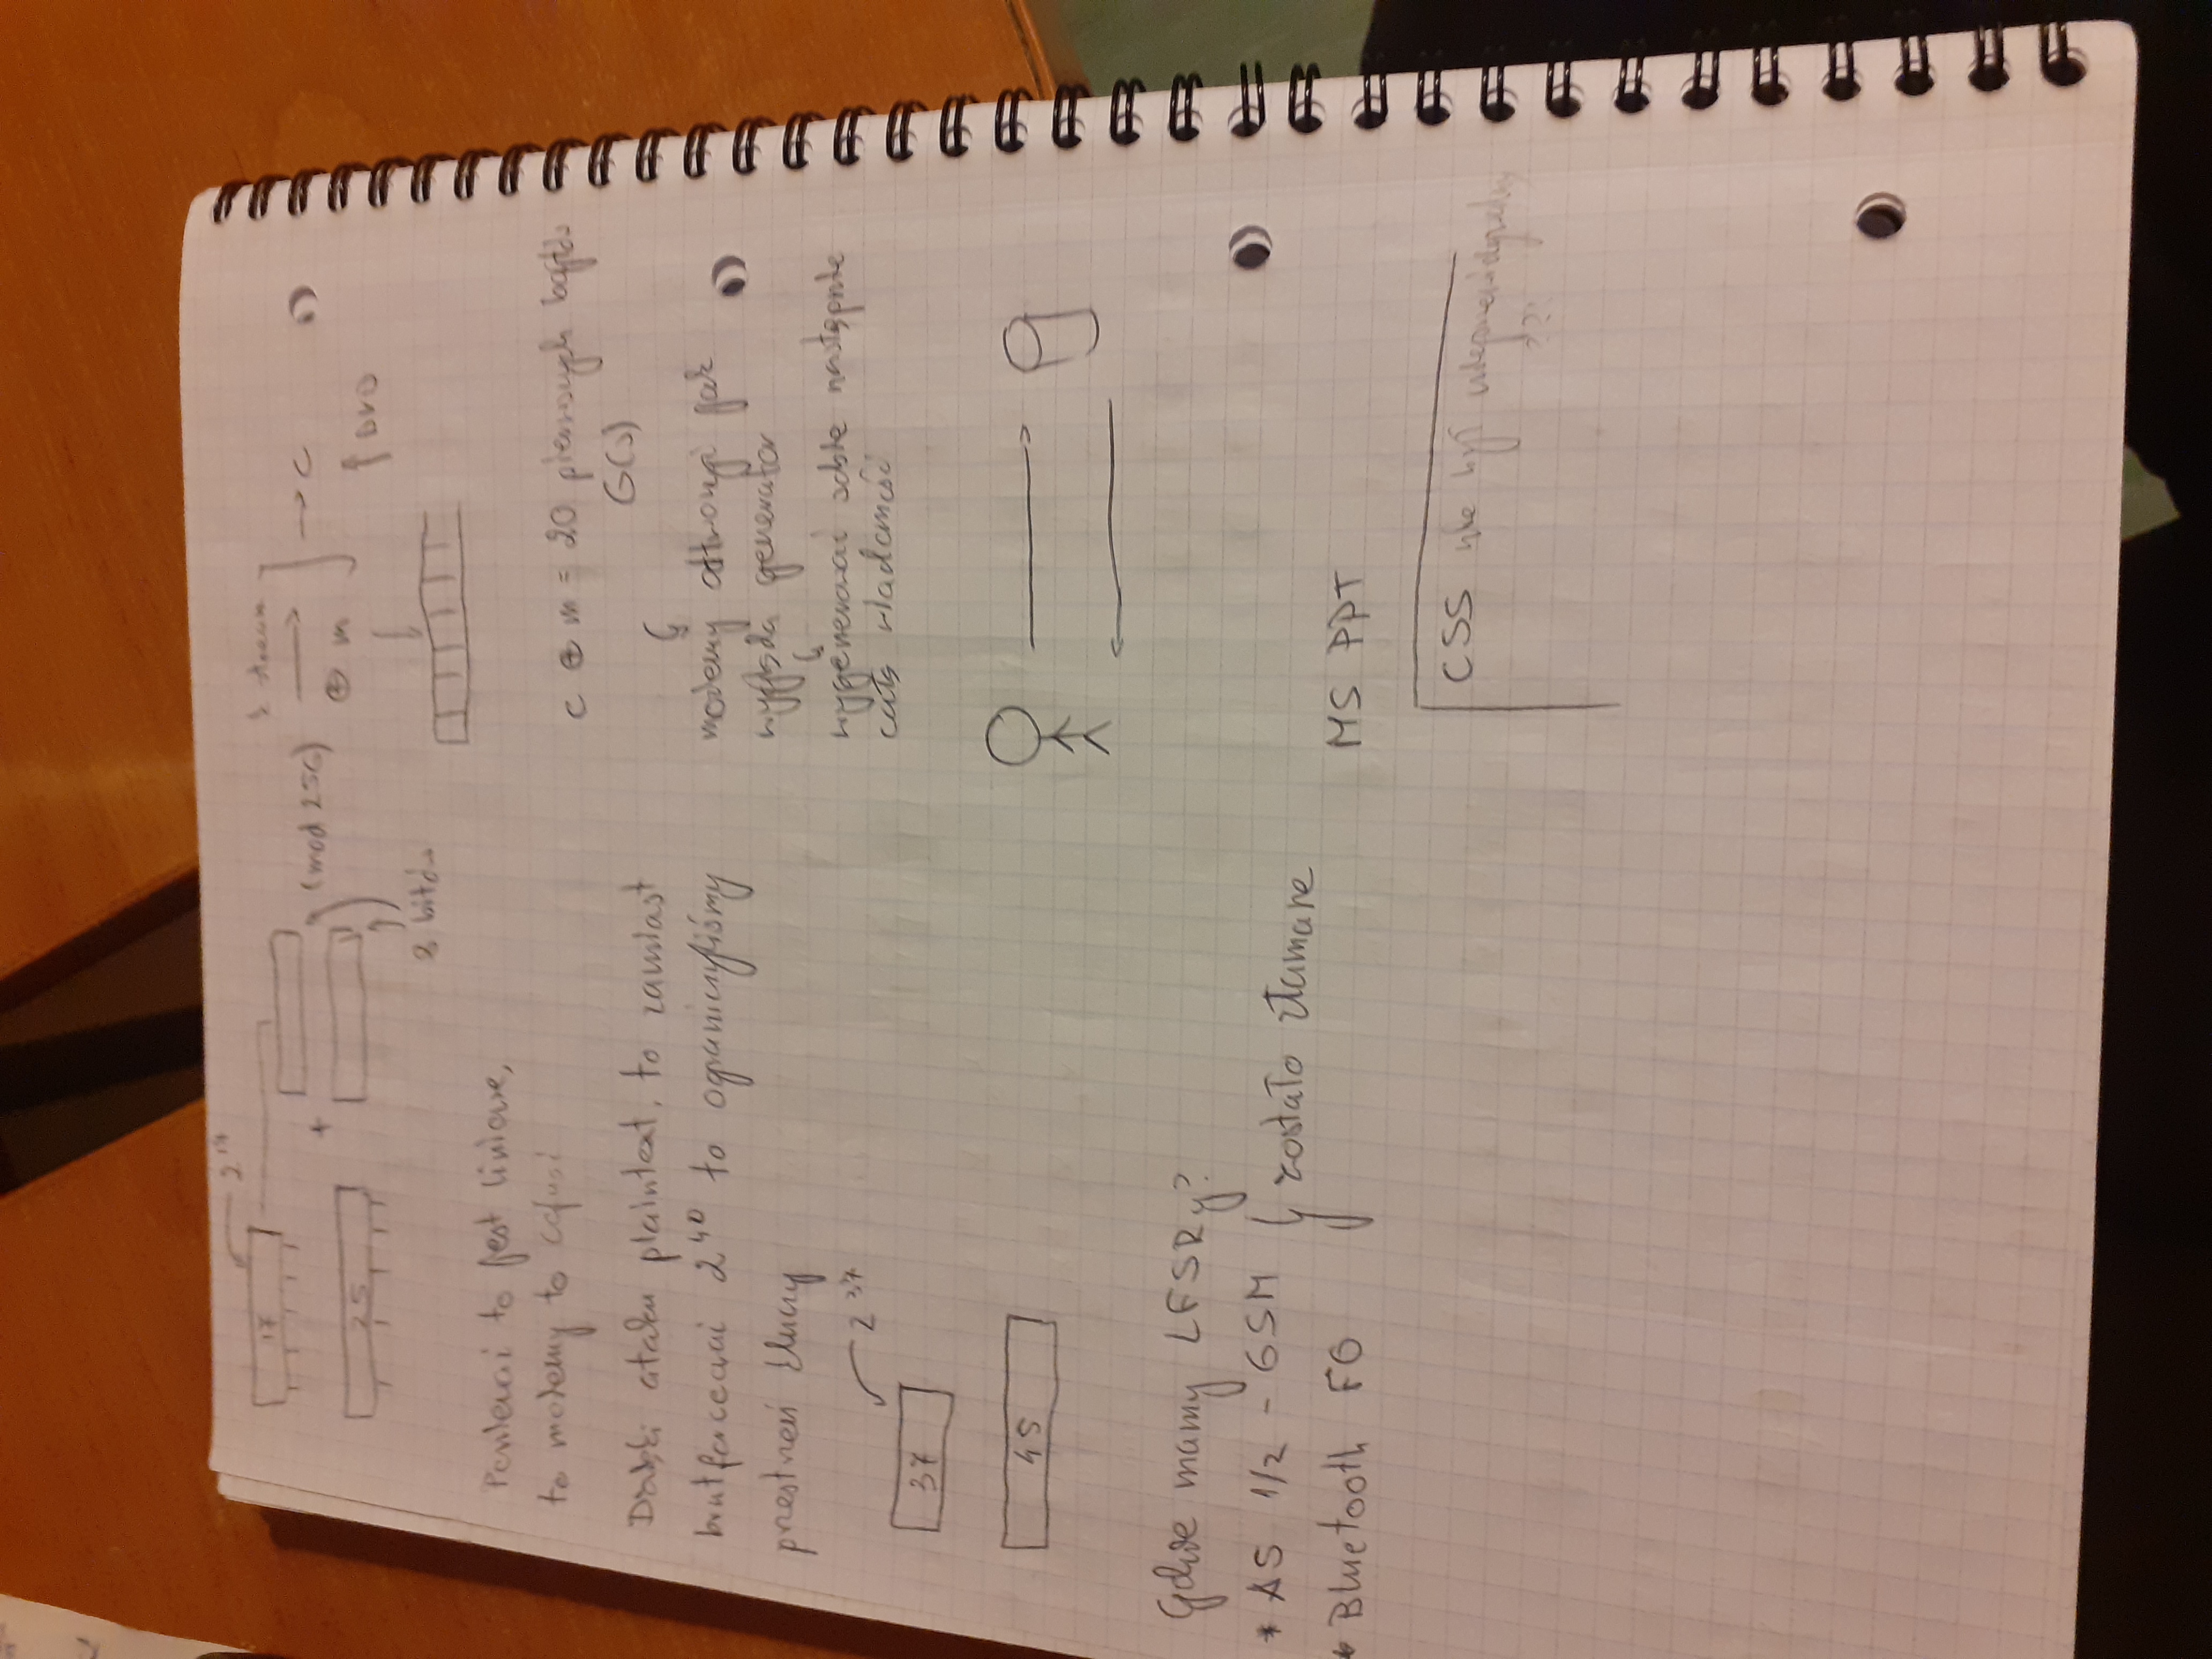 2¹⁷
17
25
+
(mod 256)
8 bitów
⊕ m
→ c
↑ DVD
Ponieważ to jest liniowe,
to możemy to cofnąć
Dzięki ataku plaintext, to zamiast
brutforceować 2⁴⁰ to ograniczyliśmy
przestrzeń kluczy
2³⁷
37
45
c ⊕ m = 20 pierwszych bajtów
G(s)
możemy odtworzyć jak
wygląda generator
wygenerować sobie następnie
całą wiadomość
Gdzie mamy LFSRy?
* A5 1/2 - GSM
* Bluetooth E0
zostało złamane
MS PPT
CSS nie był
???